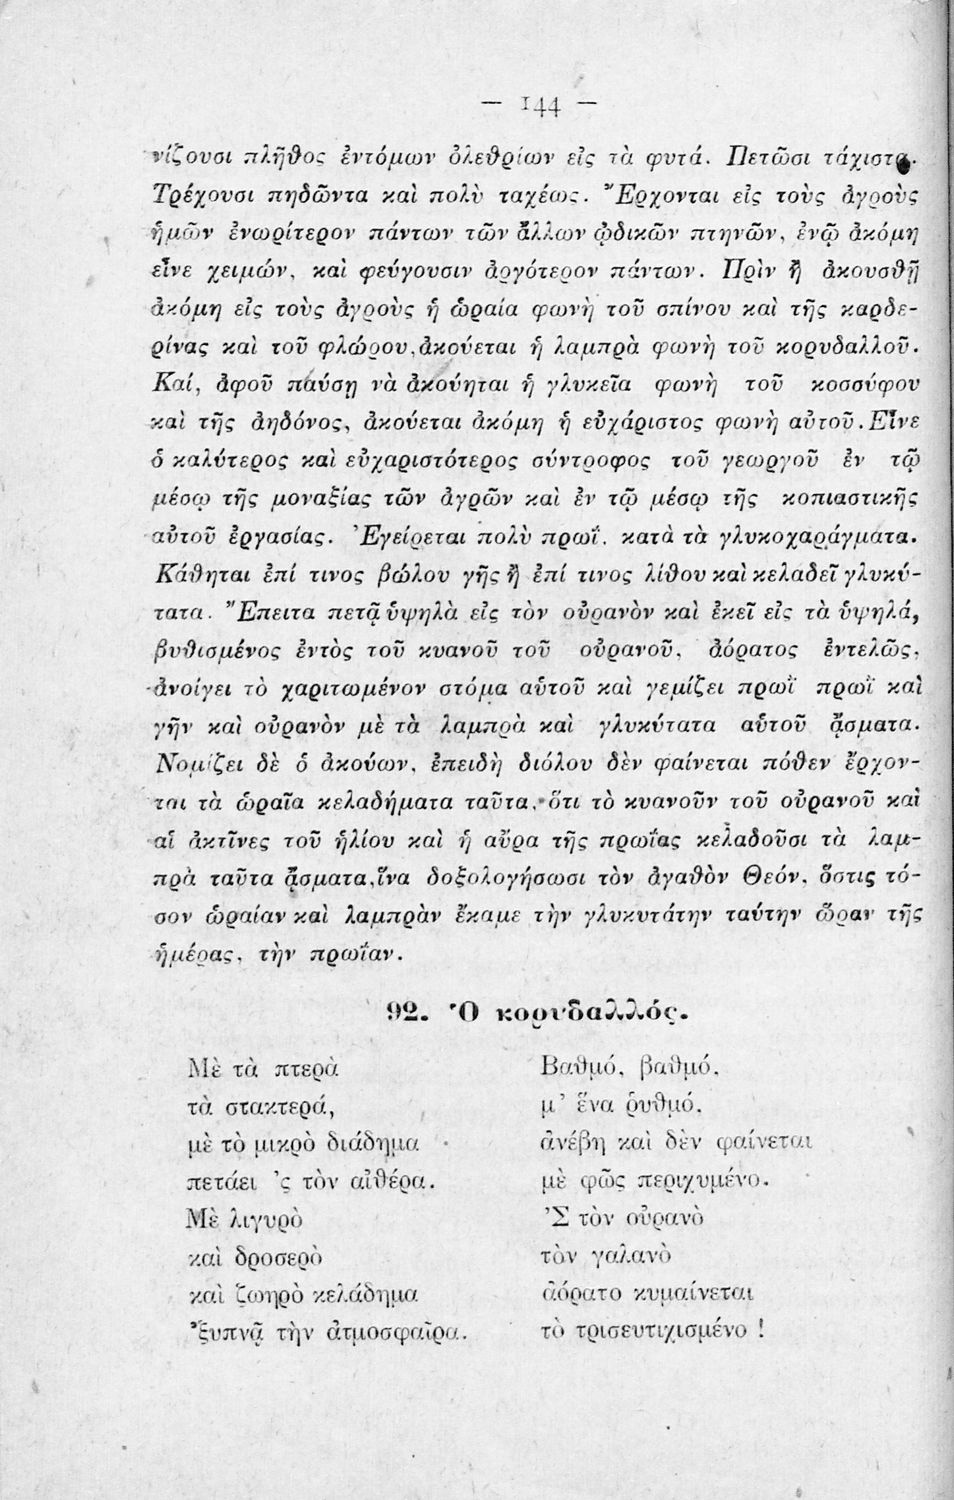 — 144 —
νίζουσι πλῆθος ἐντόμων ὀλεθρίων εἰς τὰ φυτά. Πετῶσι τάχιστα.
Τρέχουσι πηδῶντα καὶ πολὺ ταχέως. Ἔρχονται εἰς τοὺς ἀγροὺς
ἡμῶν ἐνωρίτερον πάντων τῶν ἄλλων ᾠδικῶν πτηνῶν, ἐνῷ ἀκόμη
εἶνε χειμών, καὶ φεύγουσιν ἀργότερον πάντων. Πρὶν ἢ ἀκουσθῇ
ἀκόμη εἰς τοὺς ἀγροὺς ἡ ὡραία φωνὴ τοῦ σπίνου καὶ τῆς καρδε-
ρίνας καὶ τοῦ φλώρου, ἀκούεται ἡ λαμπρὰ φωνὴ τοῦ κορυδαλλοῦ.
Καί, ἀφοῦ παύσῃ νὰ ἀκούηται ἡ γλυκεῖα φωνὴ τοῦ κοσσύφου
καὶ τῆς ἀηδόνος, ἀκούεται ἀκόμη ἡ εὐχάριστος φωνὴ αὐτοῦ. Εἶνε
ὁ καλύτερος καὶ εὐχαριστότερος σύντροφος τοῦ γεωργοῦ ἐν τῷ
μέσῳ τῆς μοναξίας τῶν ἀγρῶν καὶ ἐν τῷ μέσῳ τῆς κοπιαστικῆς
αὐτοῦ ἐργασίας. Ἐγείρεται πολὺ πρωΐ, κατὰ τὰ γλυκοχαράγματα.
Κάθηται ἐπί τινος βώλου γῆς ἢ ἐπί τινος λίθου καὶ κελαδεῖ γλυκύ-
τατα. Ἔπειτα πετᾷ ὑψηλὰ εἰς τὸν οὐρανὸν καὶ ἐκεῖ εἰς τὰ ὑψηλά,
βυθισμένος ἐντὸς τοῦ κυανοῦ τοῦ οὐρανοῦ, ἀόρατος ἐντελῶς,
ἀνοίγει τὸ χαριτωμένον στόμα αὑτοῦ καὶ γεμίζει πρωῒ πρωῒ καὶ
γῆν καὶ οὐρανὸν μὲ τὰ λαμπρὰ καὶ γλυκύτατα αὑτοῦ ᾄσματα.
Νομίζει δὲ ὁ ἀκούων, ἐπειδὴ διόλου δὲν φαίνεται πόθεν ἔρχον-
ται τὰ ὡραῖα κελαδήματα ταῦτα, ὅτι τὸ κυανοῦν τοῦ οὐρανοῦ καὶ
αἱ ἀκτῖνες τοῦ ἡλίου καὶ ἡ αὔρα τῆς πρωΐας κελαδοῦσι τὰ λαμ-
πρὰ ταῦτα ᾄσματα, ἵνα δοξολογήσωσι τὸν ἀγαθὸν Θεόν, ὅστις τό-
σον ὡραίαν καὶ λαμπρὰν ἔκαμε τὴν γλυκυτάτην ταύτην ὥραν τῆς
ἡμέρας, τὴν πρωΐαν.
92. Ὁ κορυδαλλός.
Μὲ τὰ πτερὰ
τὰ στακτερά,
μὲ τὸ μικρὸ διάδημα
πετάει 'ς τὸν αἰθέρα.
Μὲ λιγυρὸ
καὶ δροσερὸ
καὶ ζωηρὸ κελάδημα
'ξυπνᾷ τὴν ἀτμοσφαῖρα.
Βαθμό, βαθμό,
μ' ἕνα ῥυθμό,
ἀνέβη καὶ δὲν φαίνεται
μὲ φῶς περιχυμένο.
'Σ τὸν οὐρανὸ
τὸν γαλανὸ
ἀόρατο κυμαίνεται
τὸ τρισευτιχισμένο !